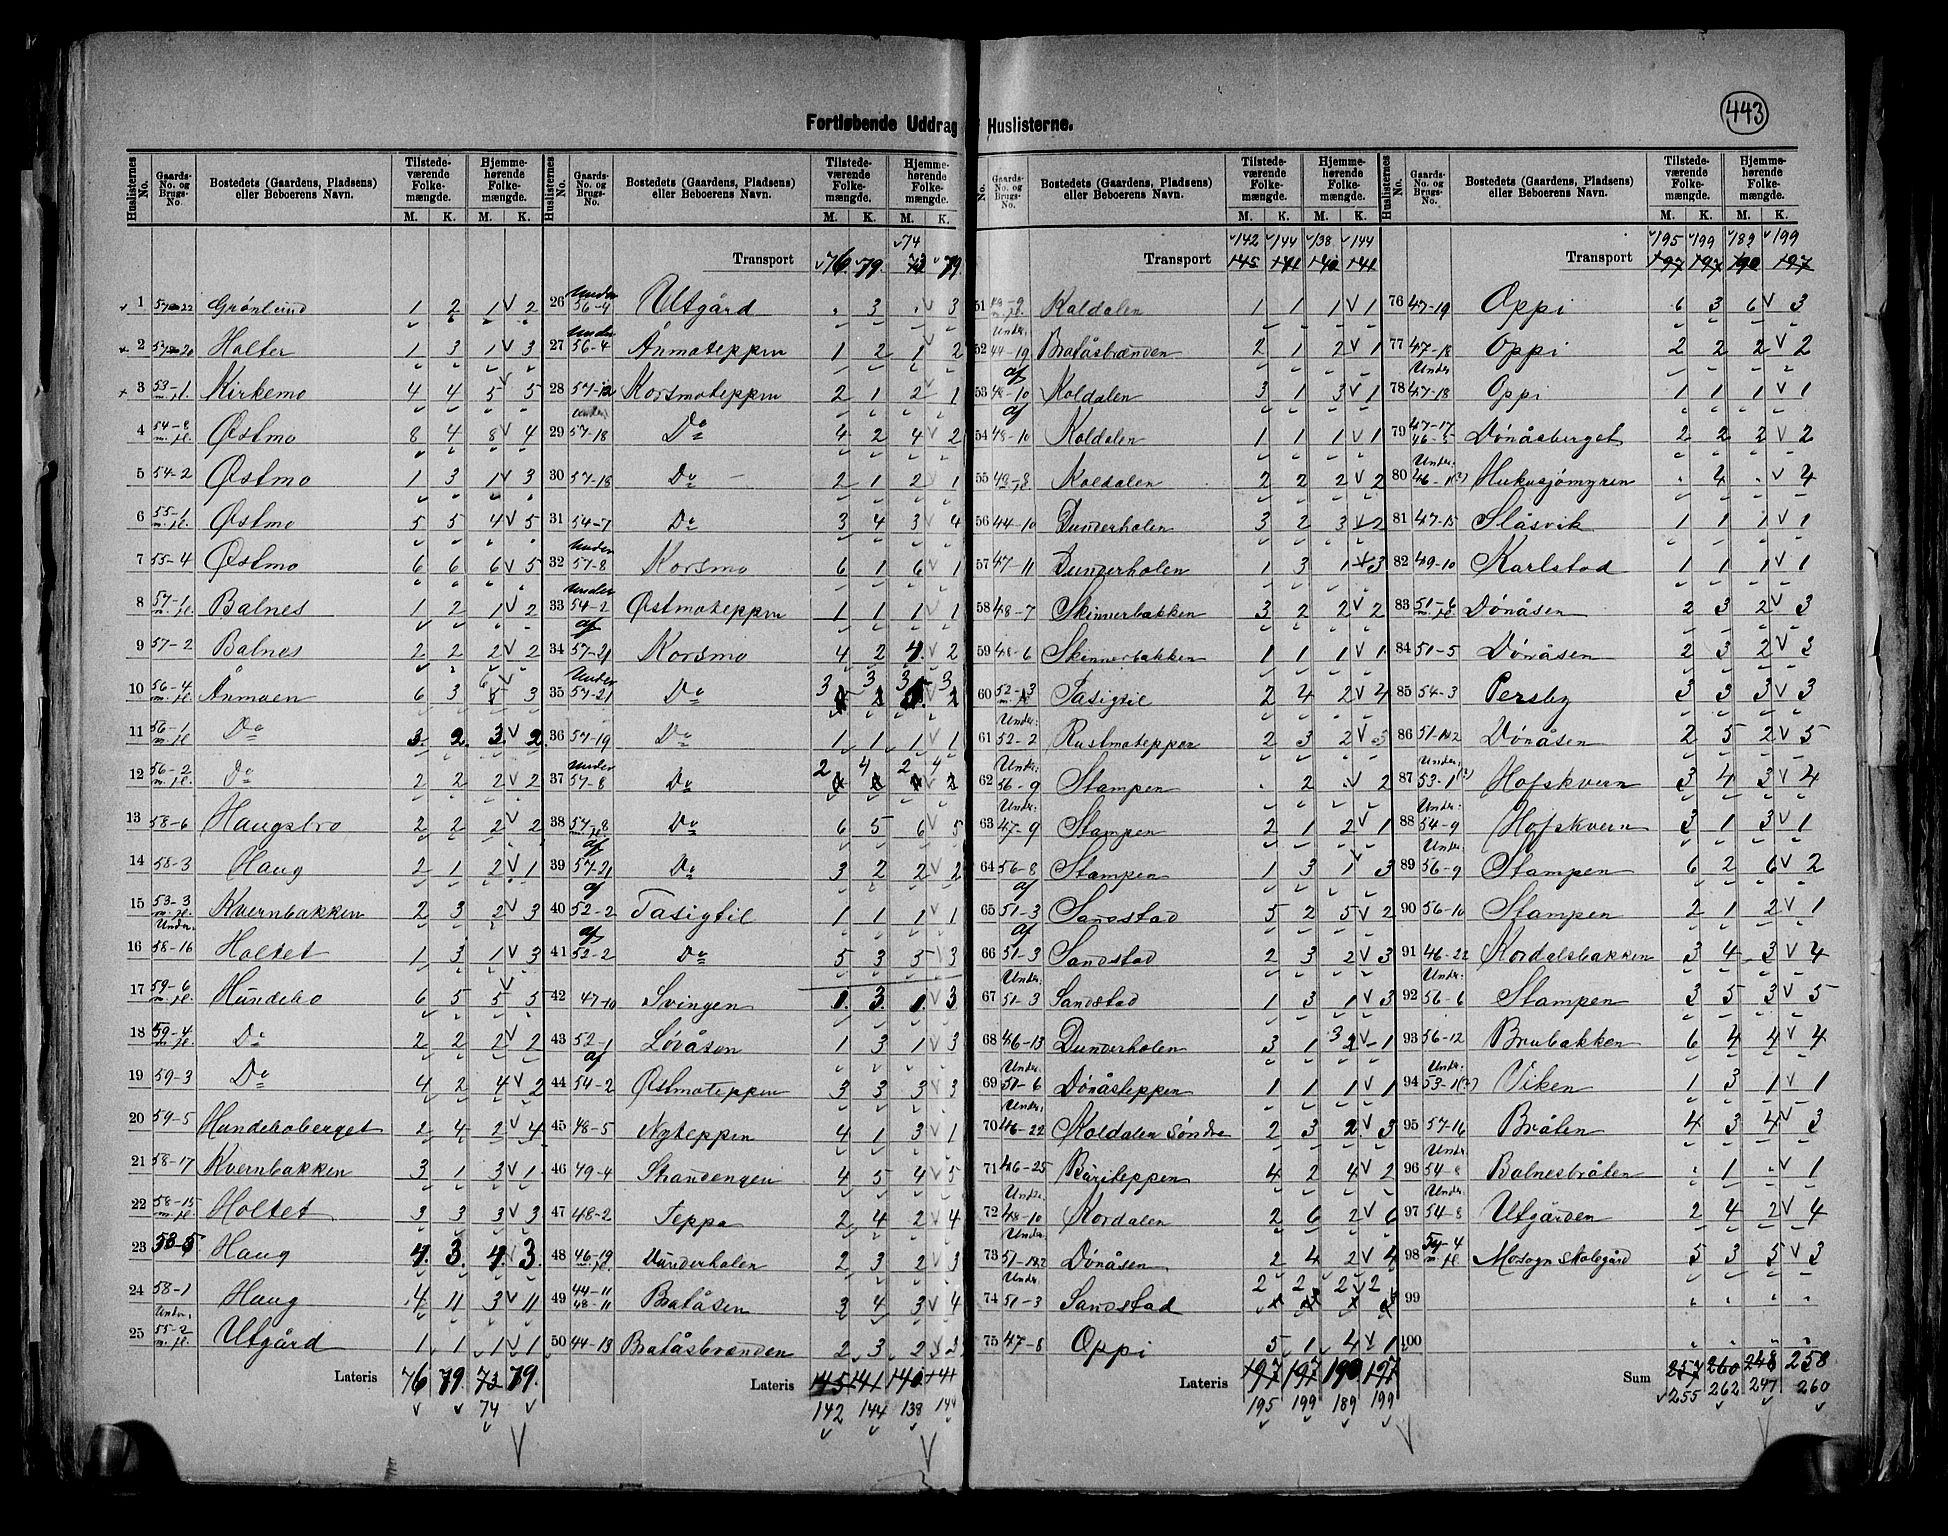 443
Fortløbende Uddrag Huslisterne.
Huslisternes No. | Gaards-No. og Brugs-No. | Bostedets (Gaardens, Pladsens) eller Beboerens Navn. | Tilstedeværende Folkemængde. M. K. | Hjemmehørende Folkemængde. M. K.
1 57-22 Grønlund 1 2 1 2
2 57-20 Holter 1 3 1 3
3 53-1 m.fl. Kirkemo 4 4 5 5
4 54-8 m.fl. Østmo 8 4 8 4
5 54-2 Østmo 1 3 1 3
6 55-1 m.fl. Østmo 5 5 4 5
7 55-4 Østmo 6 6 6 5
8 57-1 m.fl. Balnes 1 2 1 2
9 57-2 Balnes 2 2 2 2
10 56-4 m.fl. Ånmoen 6 3 6 3
11 56-1 m.fl. Do 3 2 3 2
12 56-2 m.fl. Do 2 2 2 2
13 58-6 Haugsbro 2 2 2 2
14 58-3 Haug 2 1 2 1
15 53-3 m.fl. Kvernbakken 2 3 2 3
16 Under 58-16 Holtet 1 3 1 3
17 59-6 m.fl. Hundebo 6 5 5 5
18 59-4 m.fl. Do 2 2 2 2
19 59-3 Do 4 2 4 2
20 59-5 Hundeboberget 2 4 2 4
21 58-17 Kvernbakken 3 1 3 1
22 58-15 m.fl. Holtet 3 3 3 3
23 58-5 Haug 4 3 4 3
24 58-1 Haug 4 11 3 11
25 Under 55-2 m.fl. Utgård 1 1 1 1
Lateris 76 79 73 79
74
Transport 76 79 73 79
74
26 Under 56-4 Utgård . 3 . 3
27 Under 56-4 Ånmoteppen 1 2 1 2
28 57-12 Korsmoteppen 2 1 2 1
29 under 57-18 Do 4 2 4 2
30 57-18 Do 2 1 2 1
31 54-7 Do 3 4 3 4
32 Under 57-8 Korsmo 6 1 6 1
33 Under 54-2 Østmoteppen 1 1 1 1
34 af 57-21 Korsmo 4 2 4 2
35 Under 57-21 Do 3 3 3 3
36 57-19 Do 1 1 1 1
37 Under 57-8 Do 2 4 2 4
38 57-8 m.fl. Do 6 5 6 5
39 af 57-21 Do 3 2 2 2
40 af 52-2 Tasigtil 1 1 1 1
41 af 52-2 Do 5 3 5 3
42 47-10 Svingen 1 3 1 3
43 52-1 Løvåsen 1 3 1 3
44 af 54-2 Østmoteppen 3 3 3 3
45 48-5 Nyteppen 4 1 3 1
46 49-4 Strandengen 4 5 4 5
47 48-2 Teppa 2 4 2 4
48 46-19 m.fl. Dunderholen 2 3 2 3
49 44-11 48-11 Bratåsen 3 4 3 4
50 44-13 Bratåsbrænden 2 3 2 3
Lateris 145 141 140 141
142 144 138 144
142 144 138 144
Transport 145 141 140 141
51 m.fl. Koldalen 1 1 1 1
52 Under: 44-19 Bratåsbrænden 2 1 2 1
53 af 48-10 Koldalen 3 1 3 1
54 af 48-10 Koldalen 1 1 1 1
55 Koldalen 2 2 2 2
56 44-10 Dunderholen 3 2 3 2
57 47-11 Dunderholen 1 3 1 3
58 48-7 Skinnerbakken 3 2 2 2
59 48-6 Skinnerbakken 1 1 1 1
60 52-3 Tasigtil 2 4 2 4
61 Under: 52-2 Rustmoteppen 2 3 2 3
62 Under: 56-9 Stampen . 2 . 2
63 Under: 47-9 Stampen 2 1 2 1
64 56-8 Stampen 1 3 1 3
65 af 51-3 Sandstad 5 2 5 2
66 af 51-3 Sandstad 2 3 2 3
67 Under: 51-3 Sandstad 1 3 1 3
68 46-13 Dunderholen 3 1 2 1
69 Under: 51-6 Dönåsteppen 1 1 1 1
70 Under: 46-22 Koldalen Søndre 2 3 2 3
71 46-25 Båriteppen 4 2 4 2
72 Under: 48-10 Kordalen 2 6 2 6
73 Under: 51-1&2 Dönåsen 2 4 2 4
74 Under: 51-3 Sandstad 2 2 2 2
75 47-8 Oppi 5 1 4 1
Lateris 197 197 190 197
195 199 189 199
195 199 189 199
Transport 197 197 190 197
76 47-19 Oppi 6 3 6 3
77 47-18 Oppi 2 2 2 2
78 Under 47-18 Oppi 1 1 1 1
79 47-17 46-5 Dönåsberget 2 2 2 2
80 Under: 46-1 Hukusjømyren . 4 . 4
81 47-15 Slåsvik 1 1 1 1
82 49-10 Karlstad 1 1 1 1
83 51-6 m.fl. Dönåsen 2 3 2 3
84 51-5 Dönåsen 2 3 2 3
85 54-3 Persby 3 3 3 3
86 51-1&2 Dönåsen 2 5 2 5
87 Under: 53-1 Hofskvern 3 4 3 4
88 Under: 54-9 Hofskvern 3 1 3 1
89 Under: 56-9 Stampen 6 2 6 2
90 56-10 Stampen 2 1 2 1
91 46-22 Kordalsbakken 3 4 3 4
92 Under: 56-6 Stampen 3 5 3 5
93 56-12 Brubakken 6 4 4 4
94 Under: 53-1 Viken 1 3 1 1
95 57-16 Bråten 4 3 4 3
96 Under: 54-8 Balnesbråten . 1 . 1
97 Under: 54-8 Utgården 2 4 2 4
98 54-4 m.fl. Mosogn Skolegård 5 3 5 3
99
100
Sum 257 260 248 258
255 262 247 260